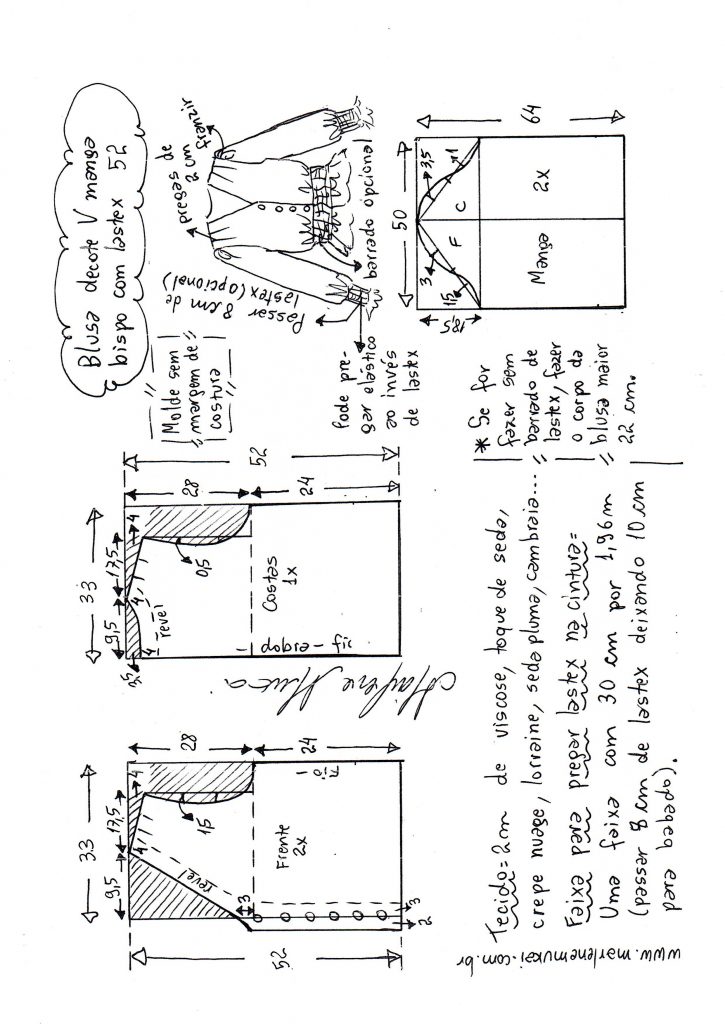 Blusa decote V manga
bispo com lastex 52
Molde sem
margem de
costura
franzir
pregas de
2 cm
Passar
8 cm de
lastex (opcional)
barrado opcional
Pode pre-
gar elástico
ao invés
de lastex
33
9,5
17,5
4
4
revel
1,5
28
24
52
Frente
2x
Fio
3
2
3
33
9,5
17,5
4
4
4
revel
0,5
28
24
52
Costas
1x
fif - esgop -
Marlene Mukai
50
64
18,5
3
3,5
1,5
1
F
C
Manga
2x
Tecido = 2 m de viscose, toque de seda,
crepe nuage, lorraine, seda pluma, cambraia...
Faixa para pregar lastex na cintura =
Uma faixa com 30 cm por 1,96 m
(passar 8 cm de lastex deixando 10 cm
para babado).
* Se for
fazer sem
barrado de
lastex, fazer
o corpo da
blusa maior
22 cm.
www.marlenemukai.com.br